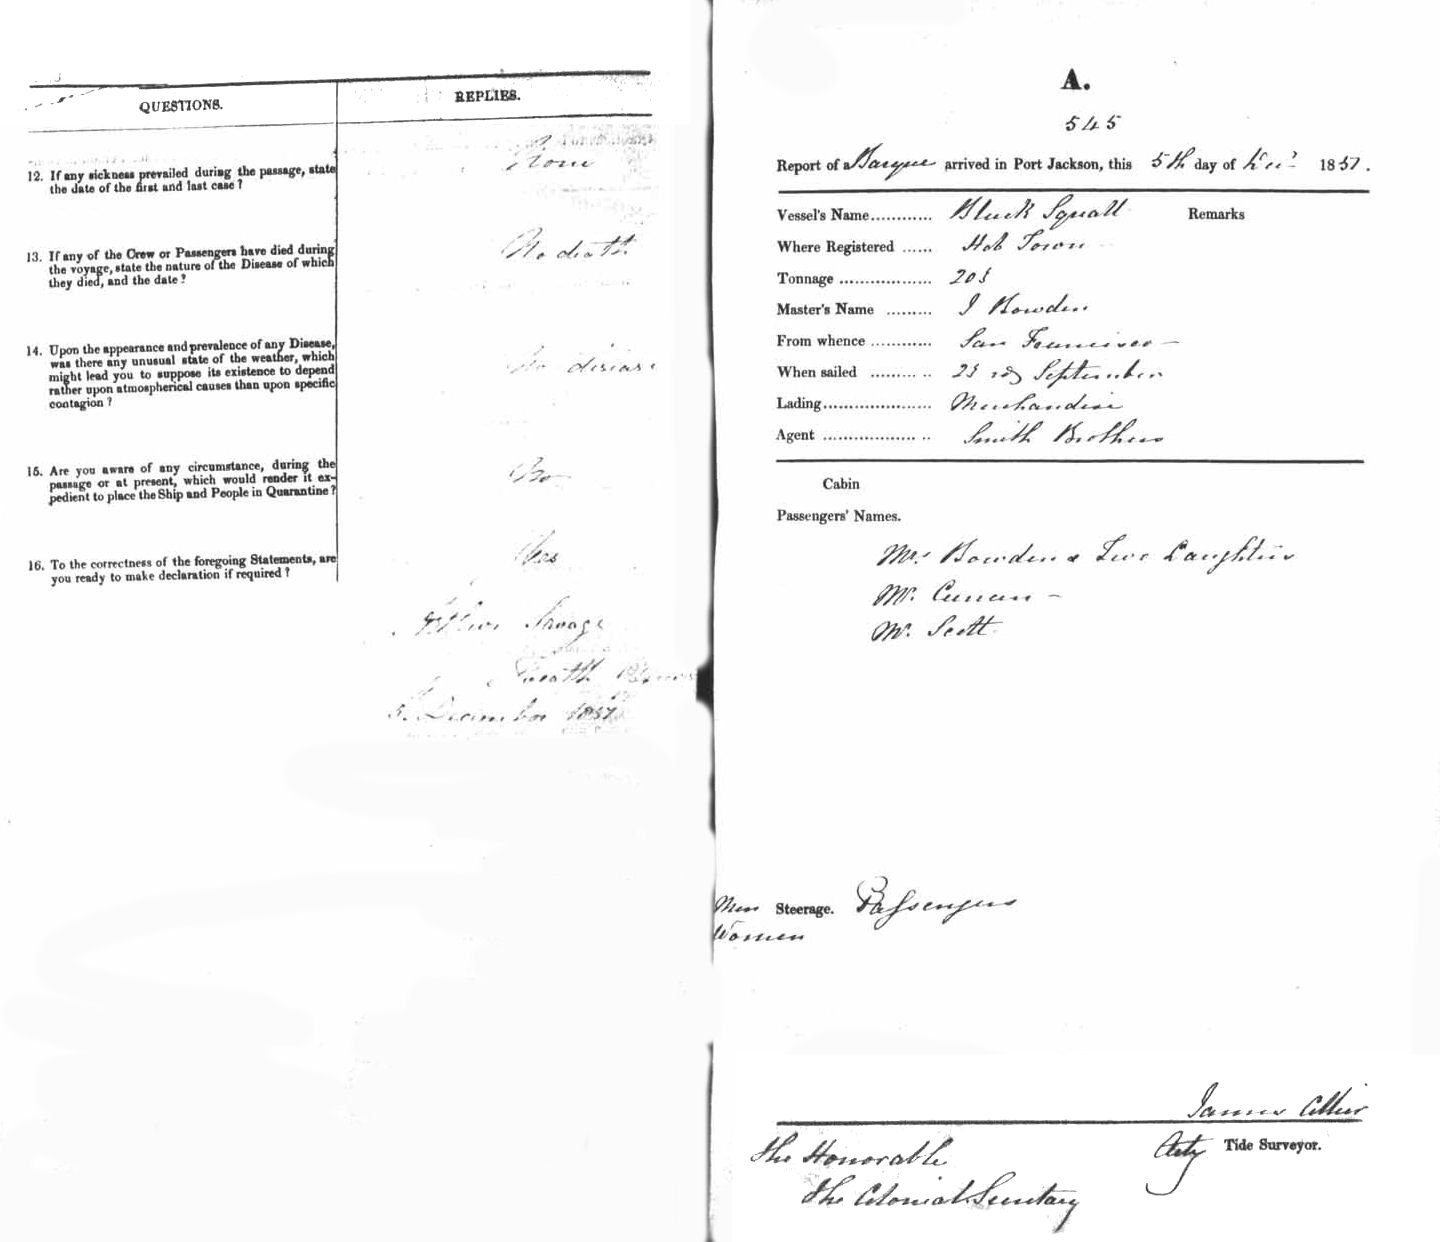 QUESTIONS.
REPLIES.
12. If any sickness prevailed during the passage, state
the date of the first and last case?
None
13. If any of the Crew or Passengers have died during
the voyage, state the nature of the Disease of which
they died, and the date?
No death
14. Upon the appearance and prevalence of any Disease,
was there any unusual state of the weather, which
might lead you to suppose its existence to depend
rather upon atmospherical causes than upon specific
contagion?
No disease
15. Are you aware of any circumstance, during the
passage or at present, which would render it ex-
pedient to place the Ship and People in Quarantine?
No
16. To the correctness of the foregoing Statements, are
you ready to make declaration if required?
Yes
Arthur Savage
Health
5 December 1851
A.
545
Report of a Barque arrived in Port Jackson, this 5th day of Decr 1851.
Vessel's Name............ Black Squall
Remarks
Where Registered ...... Hob Town
Tonnage .................. 203
Master's Name ......... J Bowden
From whence ............ San Francisco
When sailed ......... .. 23 rd September
Lading..................... Merchandise
Agent .................. .. Smith Brothers
Cabin
Passengers' Names.
Mrs Bowden & Two Daughters
Mr. Curran
Mr. Scott
Men Steerage. Passengers
Women
James
Actg Tide Surveyor.
The Honorable
The Colonial Secretary